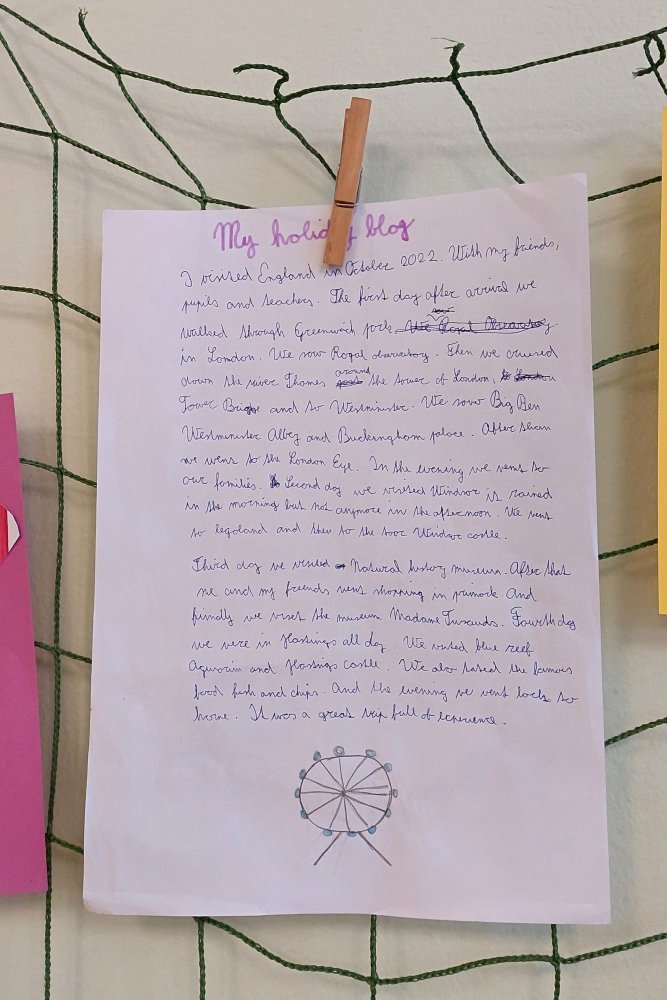 My holiday blog
I visited England in October 2022. With my friends,
pupils and teachers. The first day after arrival we
walked through Greenwich park
in London. We saw Royal observatory. Then we cruised
down the river Thames around the tower of London,
Tower Bridge and to Westminster. We saw Big Ben
Westminster Albey and Buckingham palace. After tham
we went to the London Eye. In the evening we went to
our families. Second day we visited Windsor it rained
in the morning but not anymore in the afternoon. We went
to legoland and then to the tour Windsor castle.
Third day we visited Natural history museum. After that
me and my friends went shopping in primark. And
finally we visit the museum Madame Tussauds. Fourth day
we were in Hastings all day. We visited blue reef
Aquarium and Hastings castle. We also tasted the famous
food fish and chips. And the evening we went back to
home. It was a great trip full of experience.